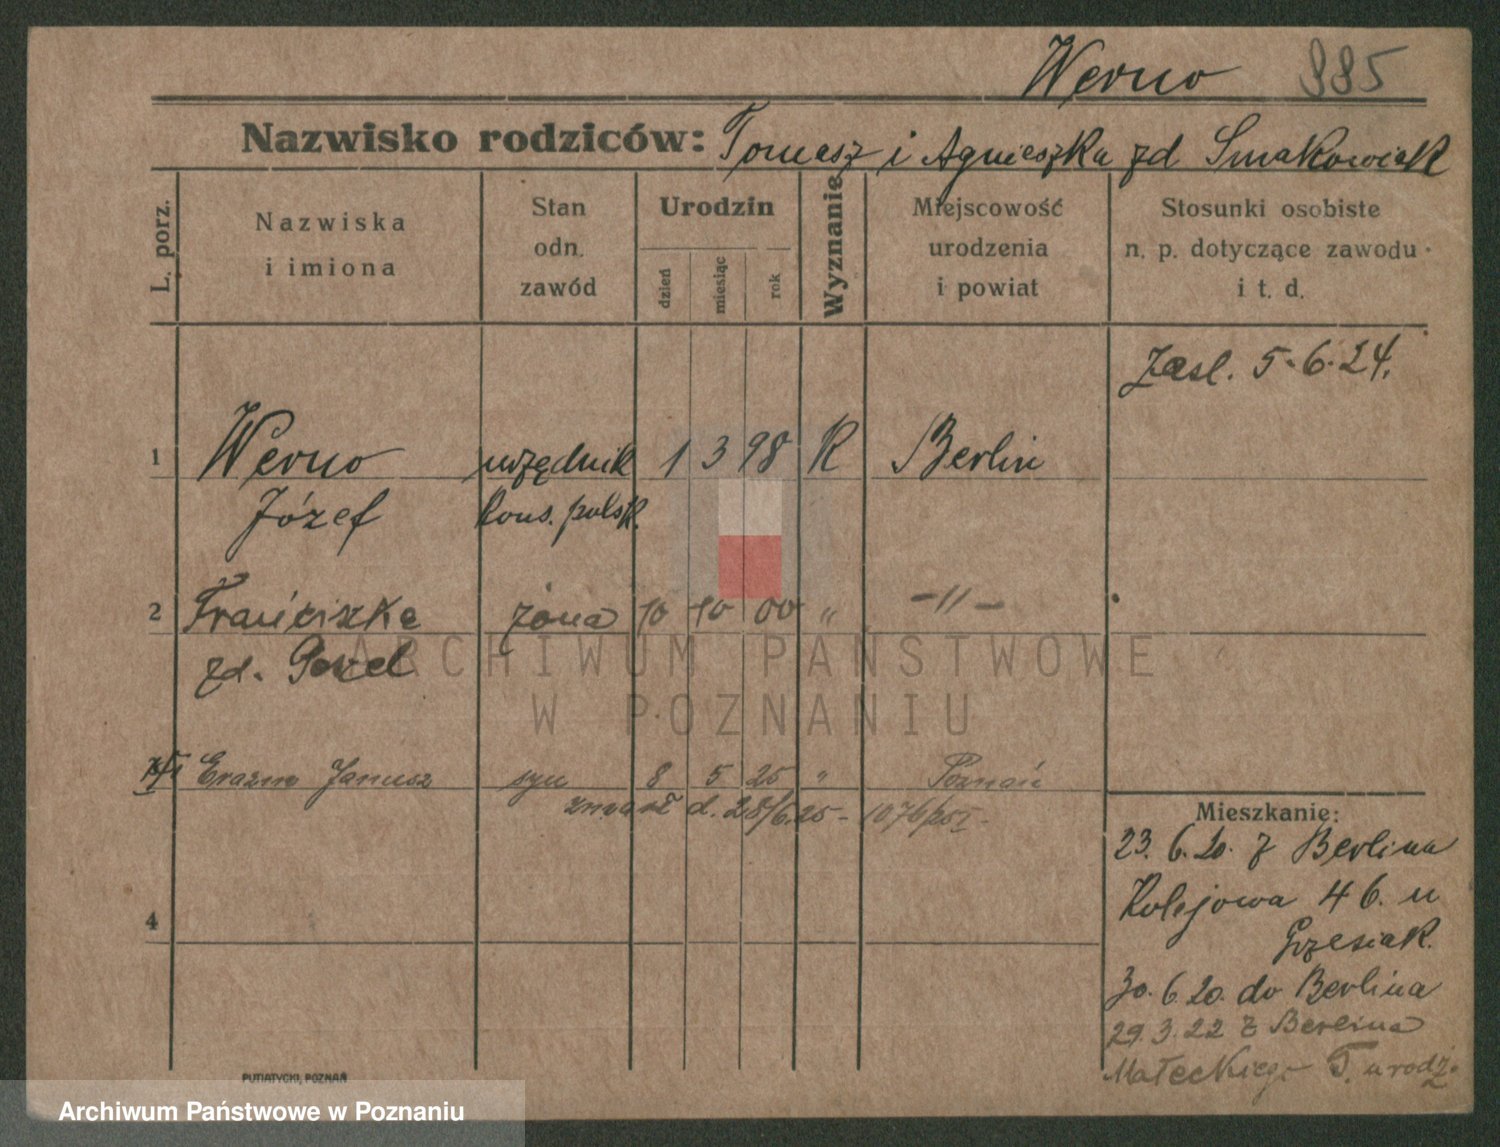 Werno 985
Nazwisko rodziców: Tomasz i Agnieszka zd Smakowiak
L. porz.
Nazwiska
i imiona
Stan
odn.
zawód
Urodzin
dzień
miesiąc
rok
Wyznanie
Miejscowość
urodzenia
i powiat
Stosunki osobiste
n. p. dotyczące zawodu
i t. d.
Zasl. 5.6.24.
1 Werno urzędnik 1 3 98 K Berlin
Józef Kons. polsk.
2 Franciszka żona 10 10 00 " -II-
zd.
Erazm Janusz syn 8 5 25 " Poznań
zmarł d. 28/6.25 - 1076/25 I -
4
Mieszkanie:
23. 6. 20. z Berlina
Kolejowa 46. u
Grzesiak.
30. 6. 20. do Berlina
29. 3. 22 z Berlina
Małeckiego
PUTIATYCKI, POZNAŃ
ARCHIWUM PAŃSTWOWE
W POZNANIU
Archiwum Państwowe w Poznaniu